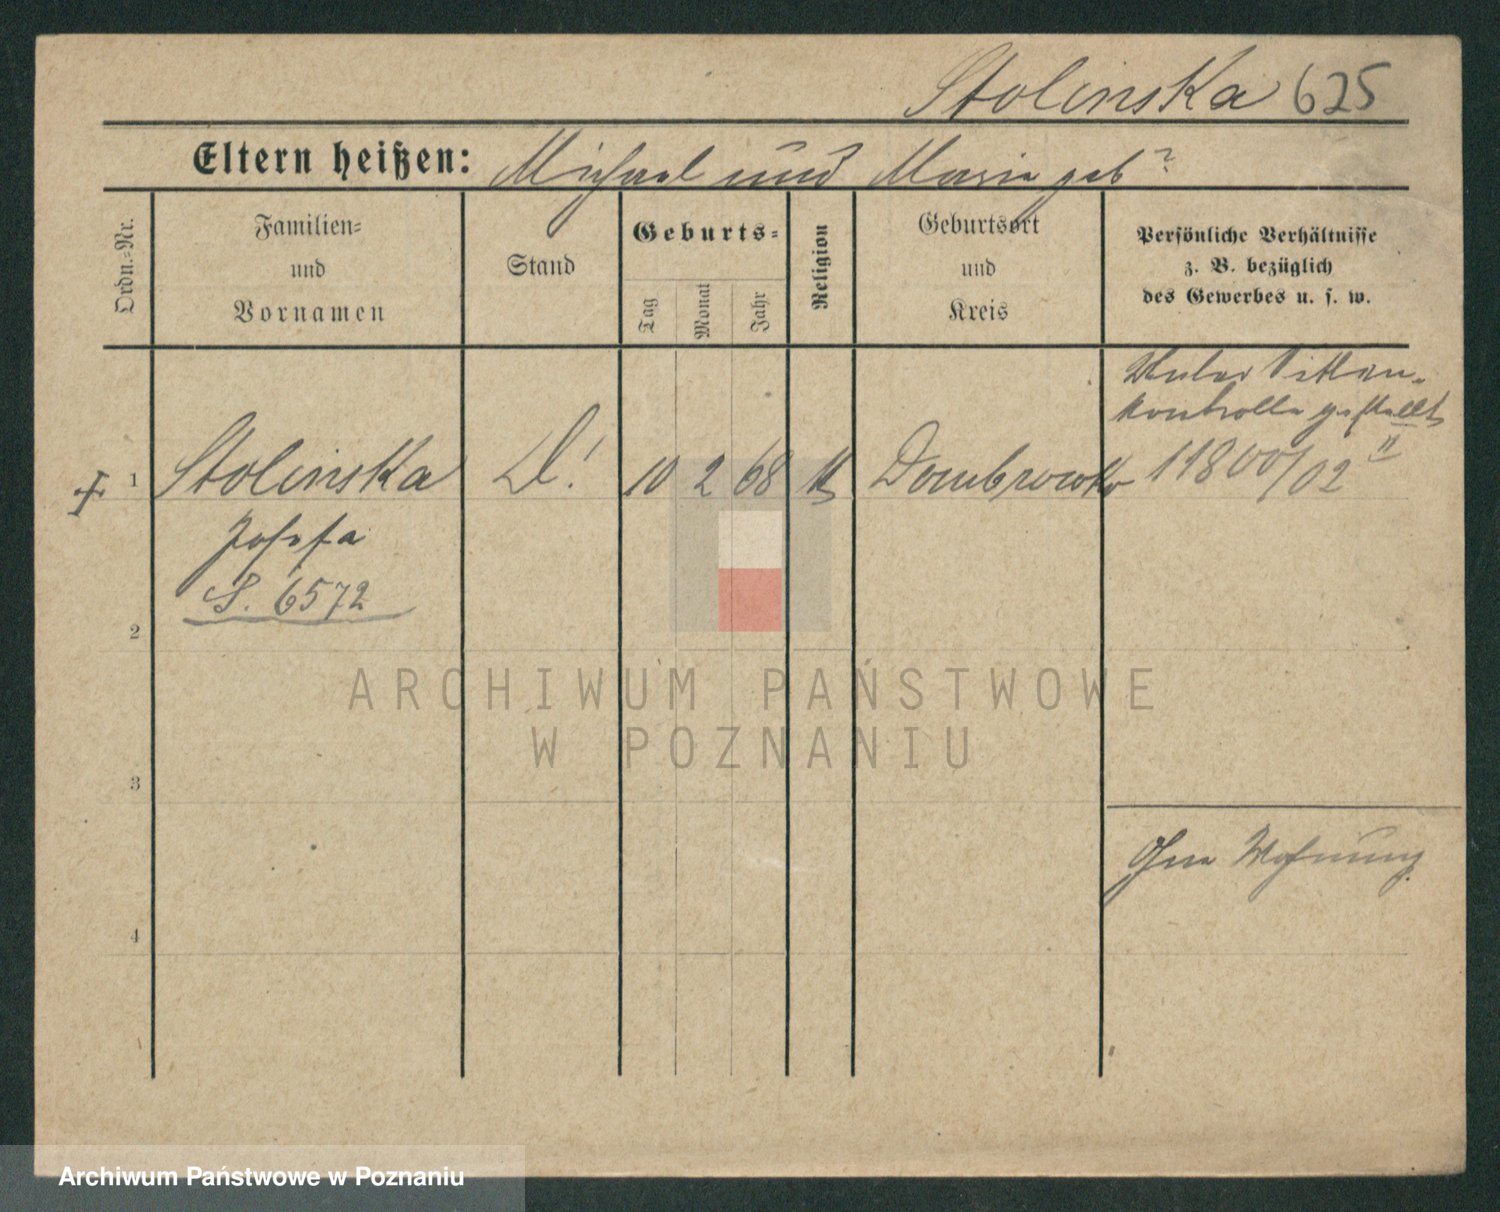 Stolinska 625
Eltern heißen: Michael und Marie geb?
Ordn.-Nr.
Familien-
und
Vornamen
Stand
Geburts-
Tag
Monat
Jahr
Religion
Geburtsort
und
Kreis
Persönliche Verhältnisse
z. B. bezüglich
des Gewerbes u. s. w.
Unter Sitten-
kontrolle gestellt
1 Stolinska D! 10 2 68 K Dombrowko 11800/02 II
Josefa
S. 6572
2
3
4
Ohne Wohnung.
ARCHIWUM PAŃSTWOWE
W POZNANIU
Archiwum Państwowe w Poznaniu